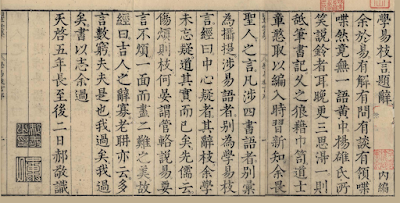 學易枝言題辭 內編
余於易有解有問有談有領而
喋然竟無一語黃中楊雄氏所
笑說鈴者耳晚更三思得一則
呧筆書記久之狼藉巾笥道士
童憨取以編時習新知余畏
聖人之言凡涉四書語者別彙
為攟摭涉易語者別為學易枝
言經曰中心疑者其辭枝余學
未忘疑道其實而已矣先儒云
傷煩則枝何晏謂管輅說易要
言不煩一面而盡二難之美故
經曰古人之辭寡老聃亦云多
言數窮夫夫是也我過矣我過
矣書以志余過
天啓五年長至後二日郝敬識